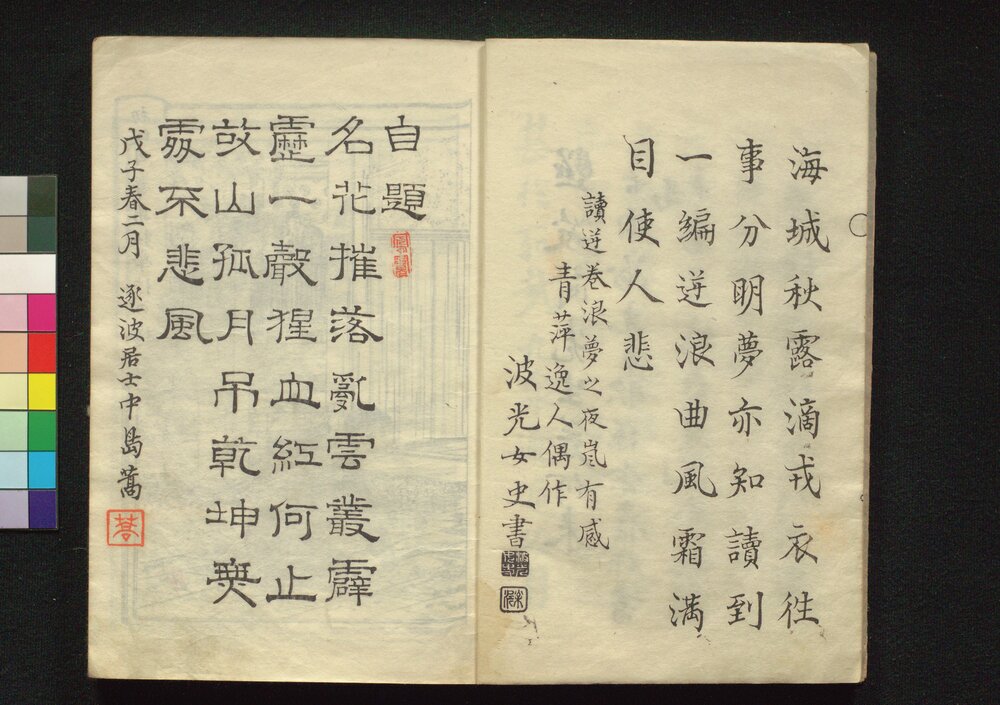 海城秋露滴戎衣徃
事分明夢亦知讀到
一編逆浪曲風霜満
目使人悲
讀逆巻浪夢之夜嵐有感
青萍逸人偶作
波光女史書
自題
名花摧落亂雲叢霹
靂一聲猩血紅何止
故山孤月吊乾坤無
處不悲風
戊子春二月 逐波居士中島蒿